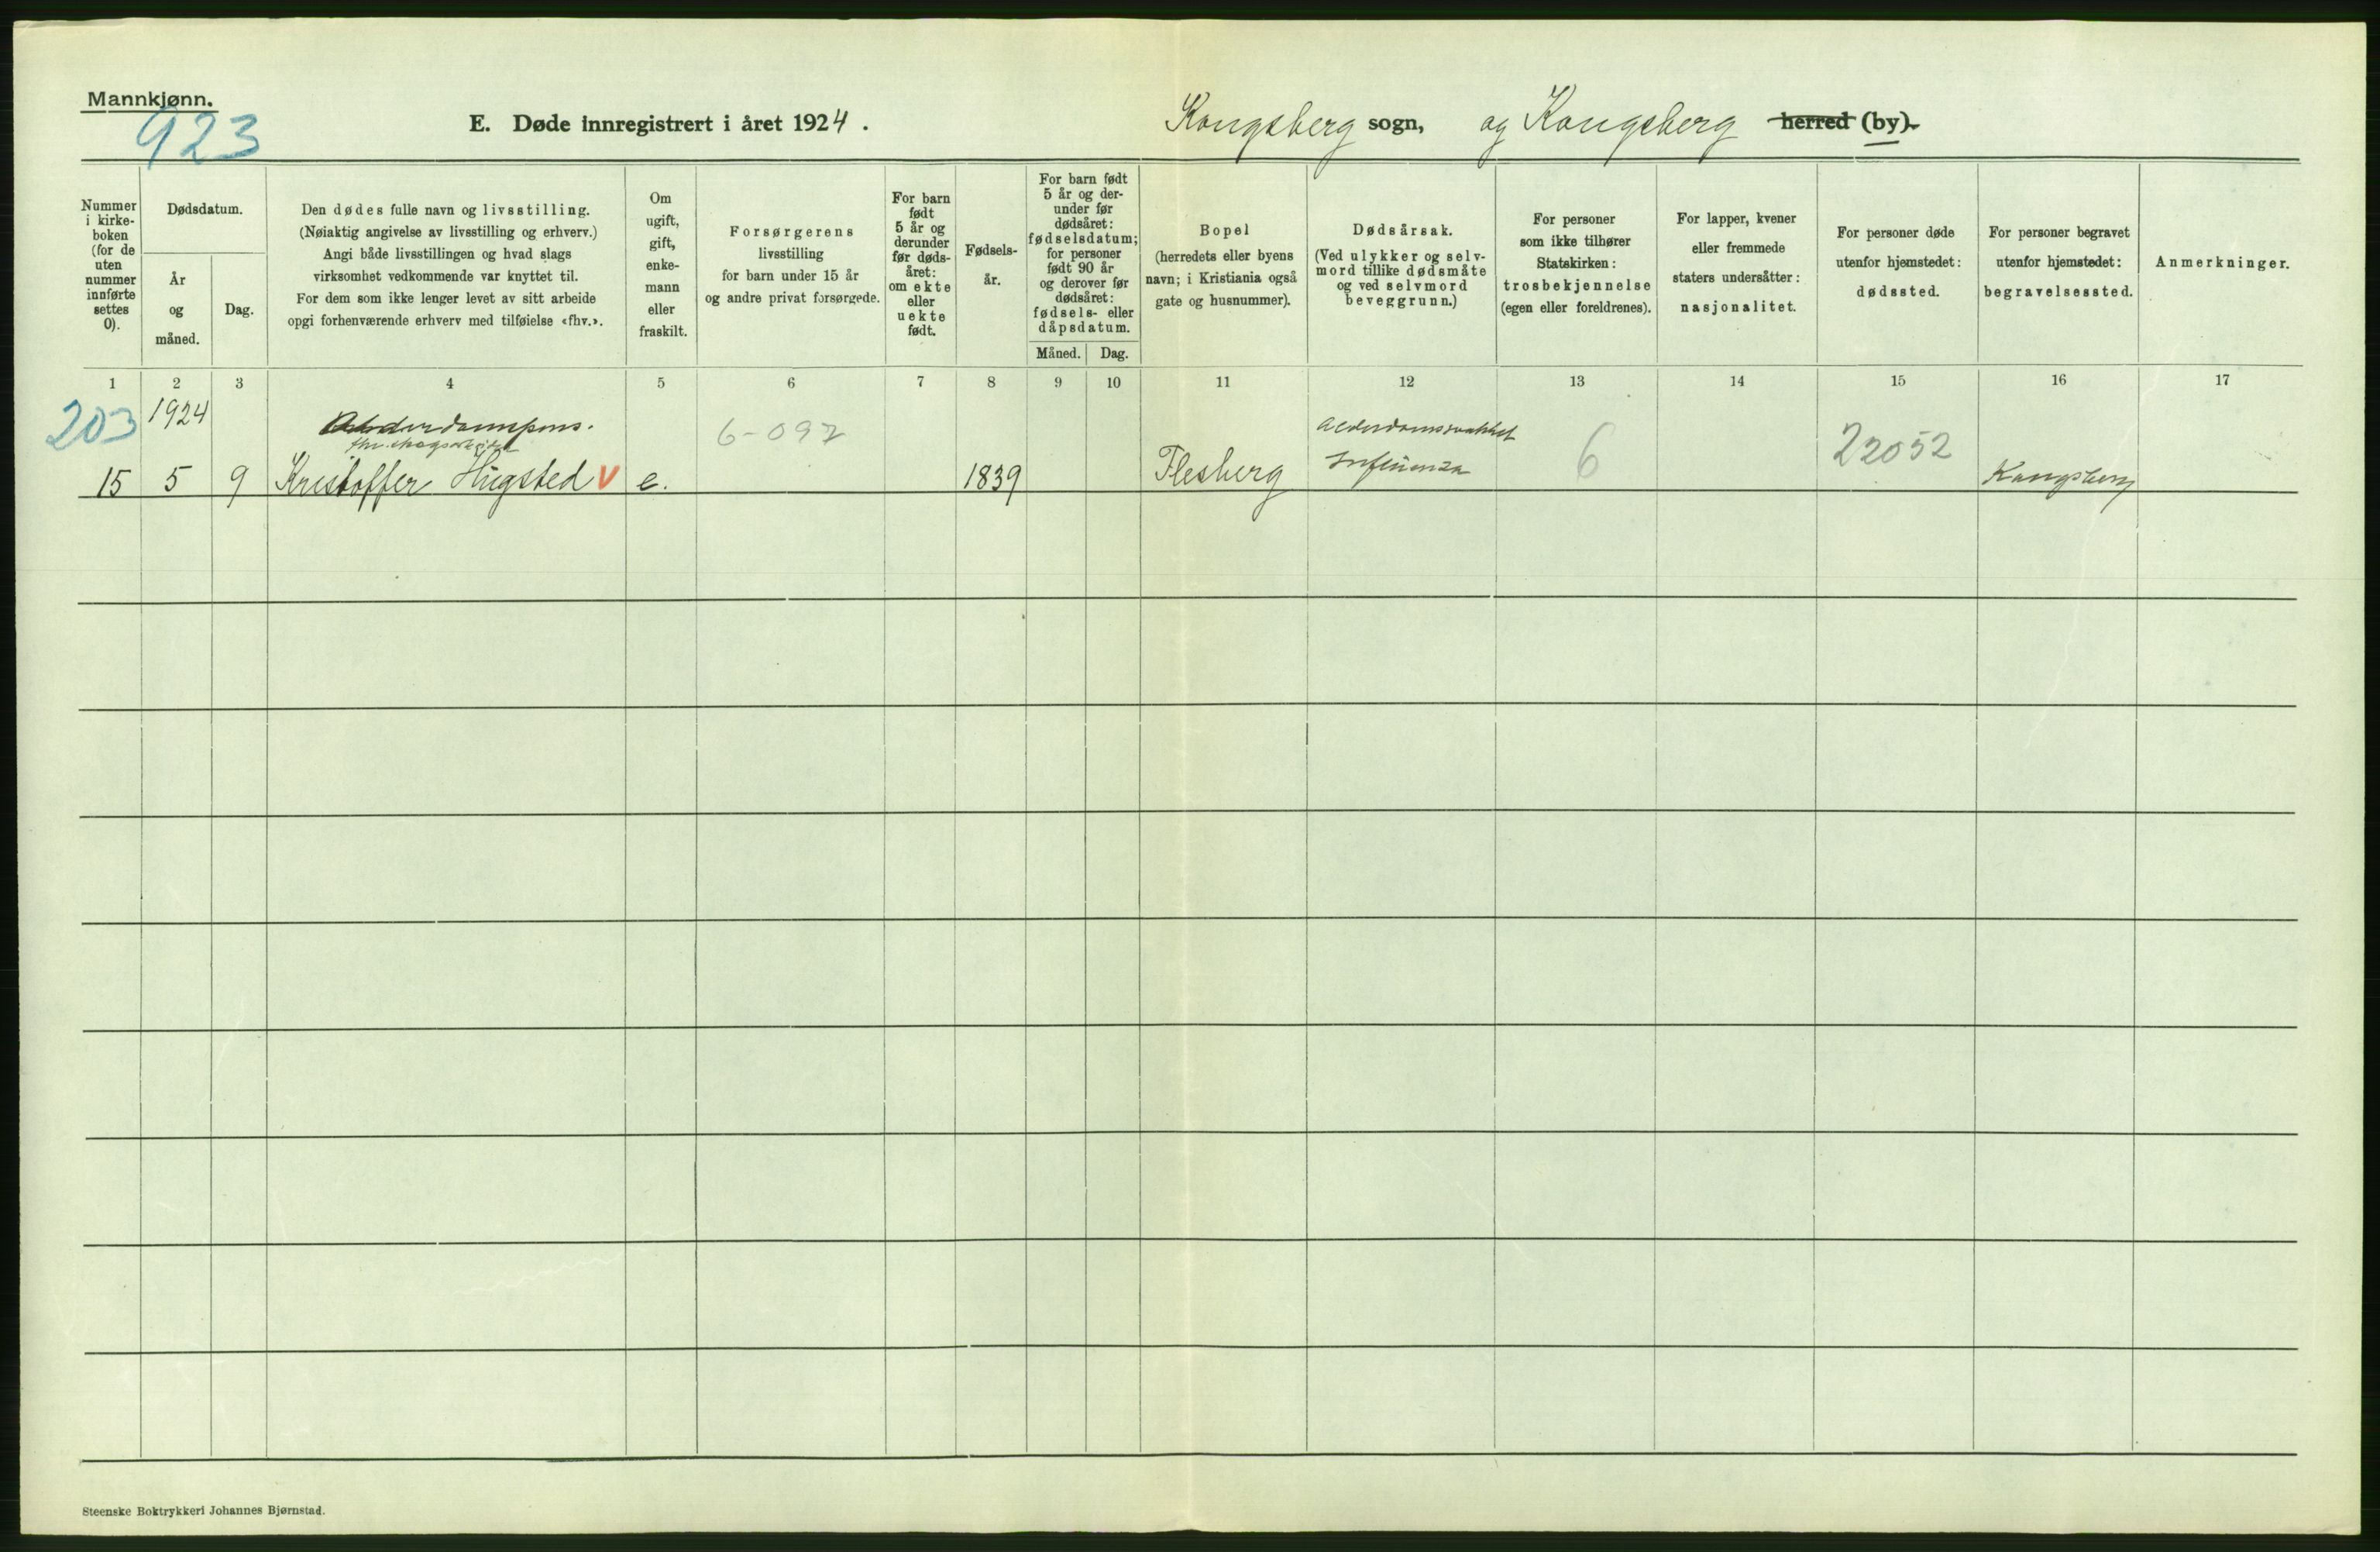 Mannkjønn.
923
E. Døde innregistrert i året 1924.
Kongsberg sogn, og Kongsberg herred (by).
Nummer
i kirke-
boken
(for de
uten
nummer
innførte
settes
0).
Dødsdatum.
År
og
måned.
Dag.
Den dødes fulle navn og livsstilling.
(Nøiaktig angivelse av livsstilling og erhverv.)
Angi både livsstillingen og hvad slags
virksomhet vedkommende var knyttet til.
For dem som ikke lenger levet av sitt arbeide
opgi forhenværende erhverv med tilføielse «fhv.».
Om
ugift,
gift,
enke-
mann
eller
fraskilt.
Forsørgerens
livsstilling
for barn under 15 år
og andre privat forsørgede.
For barn
født
5 år og
derunder
før døds-
året:
om ekte
eller
uekte
født.
Fødsels-
år.
For barn født
5 år og der-
under før
dødsåret:
fødselsdatum;
for personer
født 90 år
og derover før
dødsåret:
fødsels- eller
dåpsdatum.
Måned.
Dag.
Bopel
(herredets eller byens
navn; i Kristiania også
gate og husnummer).
Dødsårsak.
(Ved ulykker og selv-
mord tillike dødsmåte
og ved selvmord
beveggrunn.)
For personer
som ikke tilhører
Statskirken:
trosbekjennelse
(egen eller foreldrenes).
For lapper, kvener
eller fremmede
staters undersåtter:
nasjonalitet.
For personer døde
utenfor hjemstedet:
dødssted.
For personer begravet
utenfor hjemstedet:
begravelsessted.
Anmerkninger.
1 2 3 4 5 6 7 8 9 10 11 12 13 14 15 16 17
203 1924 Alderdomspens. 6-097 Alderdomssvakhet 6 22052
15 5 9 Kristoffer Hugsted V e. 1839 Flesberg Influenza Kongsberg
Steenske Boktrykkeri Johannes Bjørnstad.